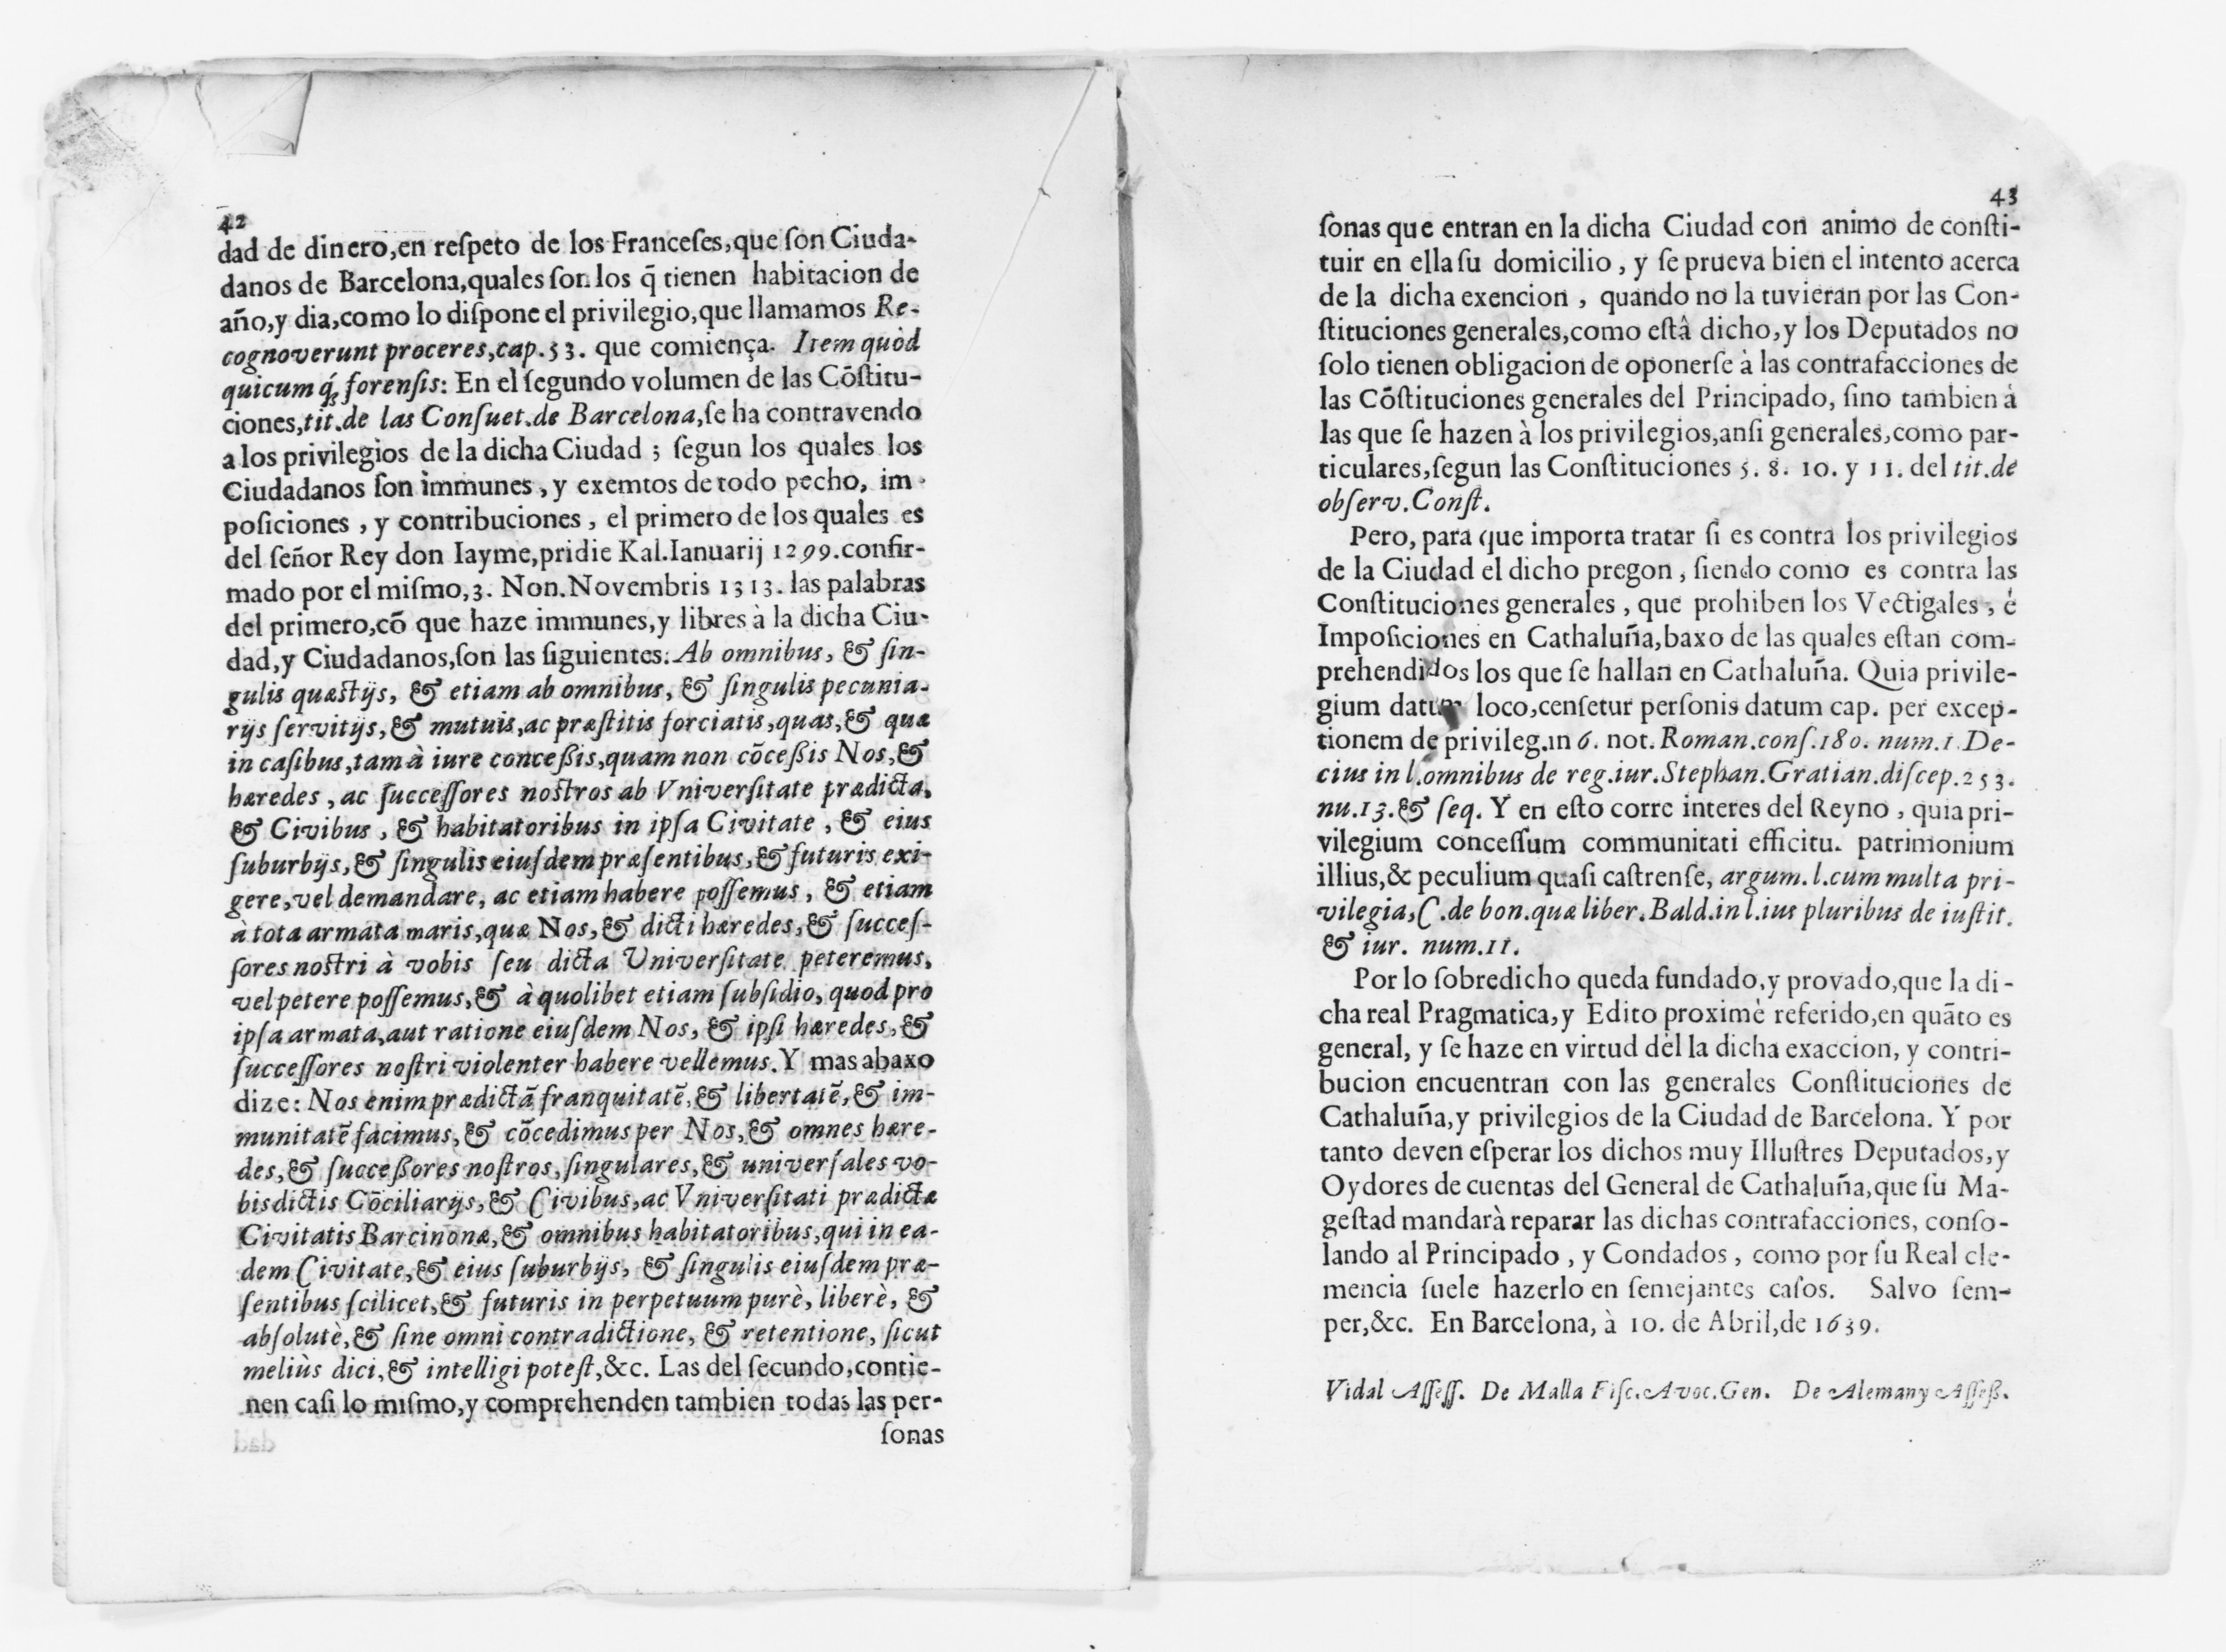 42
dad de dinero,en reſpeto de los Franceſes,que ſon Ciuda-
danos de Barcelona,quales ſon los q̃ tienen habitacion de
año,y dia,como lo diſpone el privilegio,que llamamos Re-
cognoverunt proceres,cap.53. que comiença. Item quòd
quicumq́; forenſis: En el ſegundo volumen de las Cõſtitu-
ciones,tit.de las Conſuet.de Barcelona,ſe ha contravendo
a los privilegios de la dicha Ciudad ; ſegun los quales los
Ciudadanos ſon immunes , y exemtos de todo pecho, im-
poſiciones , y contribuciones , el primero de los quales es
del ſeñor Rey don Iayme,pridie Kal.Ianuarij 1299.confir-
mado por el miſmo,3. Non.Novembris 1313. las palabras
del primero,cõ que haze immunes,y libres à la dicha Ciu-
dad,y Ciudadanos,ſon las ſiguientes: Ab omnibus, & ſin-
gulis quæstijs, & etiam ab omnibus, & ſingulis pecunia-
rijs ſervitijs,& mutuis,ac præſtitis forciatis,quas,& quæ
in caſibus,tam à iure conceßis,quam non cõceßis Nos,&
hæredes , ac ſucceſſores nostros ab Vniverſitate prædicta,
& Civibus , & habitatoribus in ipſa Civitate , & eius
ſuburbijs,& ſingulis eiuſdem præſentibus,& futuris exi-
gere,vel demandare, ac etiam habere poſſemus , & etiam
à tota armata maris,quæ Nos,& dicti hæredes,& ſucceſ-
ſores nostri à vobis ſeu dicta Vniverſitate peteremus,
vel petere poſſemus,& à quolibet etiam ſubſidio, quod pro
ipſa armata,aut ratione eiuſdem Nos, & ipſi hæredes,&
ſucceſſores noſtri violenter habere vellemus.Y mas abaxo
dize: Nos enim prædictã franquitatẽ,& libertatẽ,& im-
munitatẽ facimus,& cõcedimus per Nos,& omnes hære-
des,& ſucceßores noſtros,ſingulares,& univerſales vo-
bis dictis Cõciliarijs,& Civibus,ac Vniverſitati prædictæ
Civitatis Barcinonæ,& omnibus habitatoribus,qui in ea-
dem Civitate,& eius ſuburbijs, & ſingulis eiuſdem præ-
ſentibus ſcilicet,& futuris in perpetuum purè, liberè, &
abſolutè,& ſine omni contradictione, & retentione, ſicut
meliùs dici,& intelligi poteſt,&c. Las del ſecundo,contie-
nen caſi lo miſmo,y comprehenden tambien todas las per-
ſonas
43
ſonas que entran en la dicha Ciudad con animo de conſti-
tuir en ella ſu domicilio , y ſe prueva bien el intento acerca
de la dicha exencion , quando no la tuvieran por las Con-
ſtituciones generales,como eſtâ dicho,y los Deputados no
ſolo tienen obligacion de oponerſe à las contrafacciones de
las Cõſtituciones generales del Principado, ſino tambien à
las que ſe hazen à los privilegios,anſi generales,como par-
ticulares,ſegun las Conſtituciones 5. 8. 10. y 11. del tit.de
obſerv.Conſt.
Pero, para que importa tratar ſi es contra los privilegios
de la Ciudad el dicho pregon , ſiendo como es contra las
Conſtituciones generales , que prohiben los Vectigales , è
Impoſiciones en Cathaluña,baxo de las quales eſtan com-
prehendidos los que ſe hallan en Cathaluña. Quia privile-
gium datum loco,cenſetur perſonis datum cap. per excep-
tionem de privileg.in 6. not. Roman.conſ.180. num.1 De-
cius in l.omnibus de reg.iur.Stephan.Gratian.diſcep.253.
nu.13.& ſeq. Y en eſto corre interes del Reyno , quia pri-
vilegium conceſſum communitati efficitu. patrimonium
illius,& peculium quaſi caſtrenſe, argum.l.cum multa pri-
vilegia,C.de bon.quæ liber.Bald.in l.ius pluribus de iuſtit.
& iur. num.11.
Por lo ſobredicho queda fundado,y provado,que la di-
cha real Pragmatica,y Edito proximè referido,en quãto es
general, y ſe haze en virtud dèl la dicha exaccion, y contri-
bucion encuentran con las generales Conſtituciones de
Cathaluña,y privilegios de la Ciudad de Barcelona. Y por
tanto deven eſperar los dichos muy Illuſtres Deputados,y
Oydores de cuentas del General de Cathaluña,que ſu Ma-
geſtad mandarà reparar las dichas contrafacciones, conſo-
lando al Principado , y Condados , como por ſu Real cle-
mencia ſuele hazerlo en ſemejantes caſos. Salvo ſem-
per,&c. En Barcelona, à 10. de Abril,de 1639.
Vidal Aſſeſſ. De Malla Fiſc.Avoc.Gen. De Alemany Aſſeß.